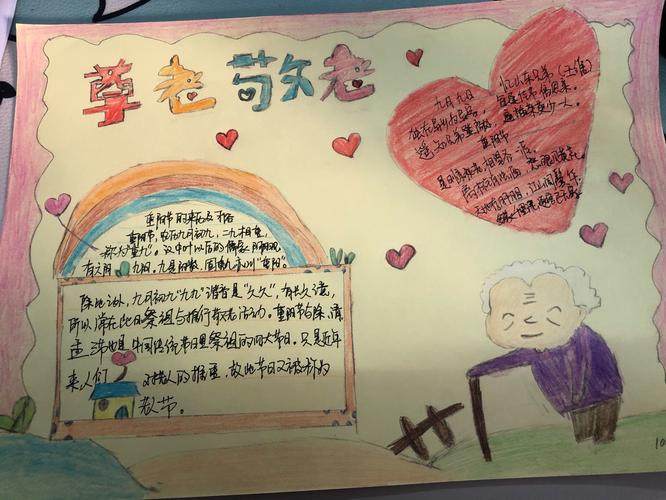 尊老敬老
忆山东兄弟（王维）
九月九日
独在异乡为异客，每逢佳节倍思亲。
遥知兄弟登高处，遍插茱萸少一人。
重阳节
重阳节的来历及习俗
重阳节，农历九月初九，二九相重，
称为"重九"。汉中叶以后的儒家
有六阴 九阳，九是阳数，固重九亦叫"重阳"
除此之外，九月初九"九九"谐音是"久久"，有长久之意，
所以常在此日祭祖与推行敬老活动。重阳节与除、清、
盂三节也是中国传统节日里祭祖的四大节日。只是近年
来人们 对老人的推重，故此节日又被称为
老人节。
10